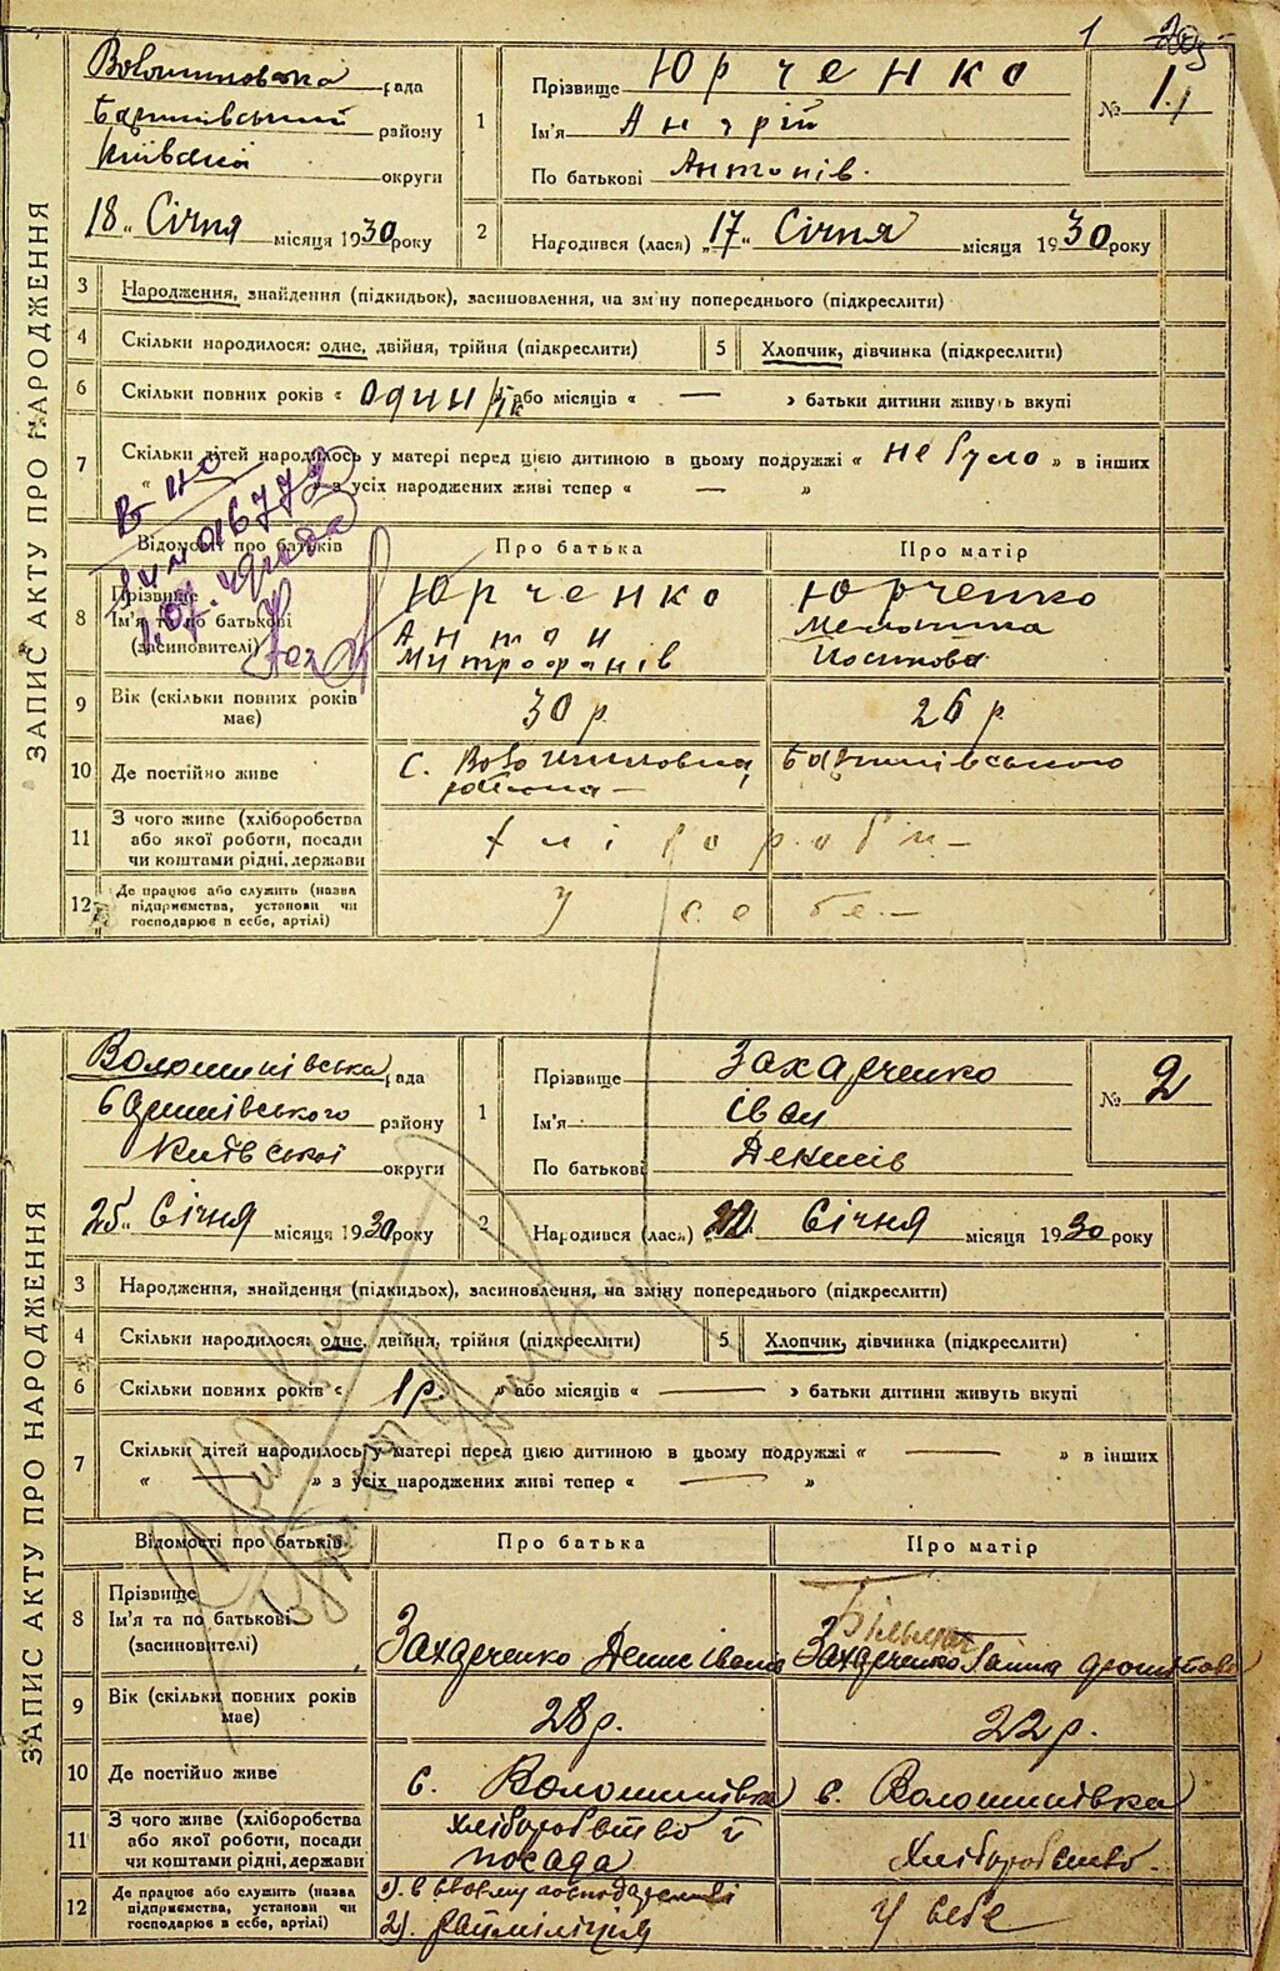 1
ЗАПИС АКТУ ПРО НАРОДЖЕННЯ
рада
району
округи
18 „ Січня місяця 1930 року
1
Прізвище Юрченко
Ім'я Андрій
По батькові Антонів.
№ 1.
2 Народився (лася) „17“ Січня місяця 1930 року
3 Народження, знайдення (підкидьок), засиновлення, на зміну попереднього (підкреслити)
4 Скільки народилося: одне, двійня, трійня (підкреслити)
5 Хлопчик, дівчинка (підкреслити)
6 Скільки повних років « один рік або місяців « — » батьки дитини живуть вкупі
7 Скільки дітей народилось у матері перед цією дитиною в цьому подружжі « не було » в інших
« » з усіх народжених живі тепер « — »
Відомости про батьків Про батька Про матір
8 Прізвище
Ім'я та по батькові
(засиновителі)
Юрченко
Антон
Митрофанів
Юрченко
9 Вік (скільки повних років має) 30 р. 26 р.
10 Де постійно живе с.
11 З чого живе (хліборобства
або якої роботи, посади
чи коштами рідні, держави
хлібороби —
12 Де працює або служить (назва
підприємства, установи чи
господарює в себе, артілі)
У себе. —
ЗАПИС АКТУ ПРО НАРОДЖЕННЯ
Волошинівська рада
району
Київської округи
25 „ Січня місяця 1930 року
1
Прізвище Захарченко
Ім'я Іван
По батькові Денисів
№ 2
2 Народився (лася) „ Січня місяця 1930 року
3 Народження, знайдення (підкидьох), засиновлення, на зміну попереднього (підкреслити)
4 Скільки народилося: одне, двійня, трійня (підкреслити)
5 Хлопчик, дівчинка (підкреслити)
6 Скільки повних років « 1 р. » або місяців « — » батьки дитини живуть вкупі
7 Скільки дітей народилось у матері перед цією дитиною в цьому подружжі « — » в інших
« — » з усіх народжених живі тепер « — »
Відомості про батьків Про батька Про матір
8 Прізвище
Ім'я та по батькові
(засиновителі)
Захарченко Денис Іванів
Захарченко Ганна
9 Вік (скільки повних років має) 28 р. 22 р.
10 Де постійно живе с. Волошинівка с. Волошинівка
11 З чого живе (хліборобства
або якої роботи, посади
чи коштами рідні, держави
хліборобство й
посада
Хліборобство.
12 Де працює або служить (назва
підприємства, установи чи
господарює в себе, артілі)
1). в своєму господарстві
2). райміліція
У себе